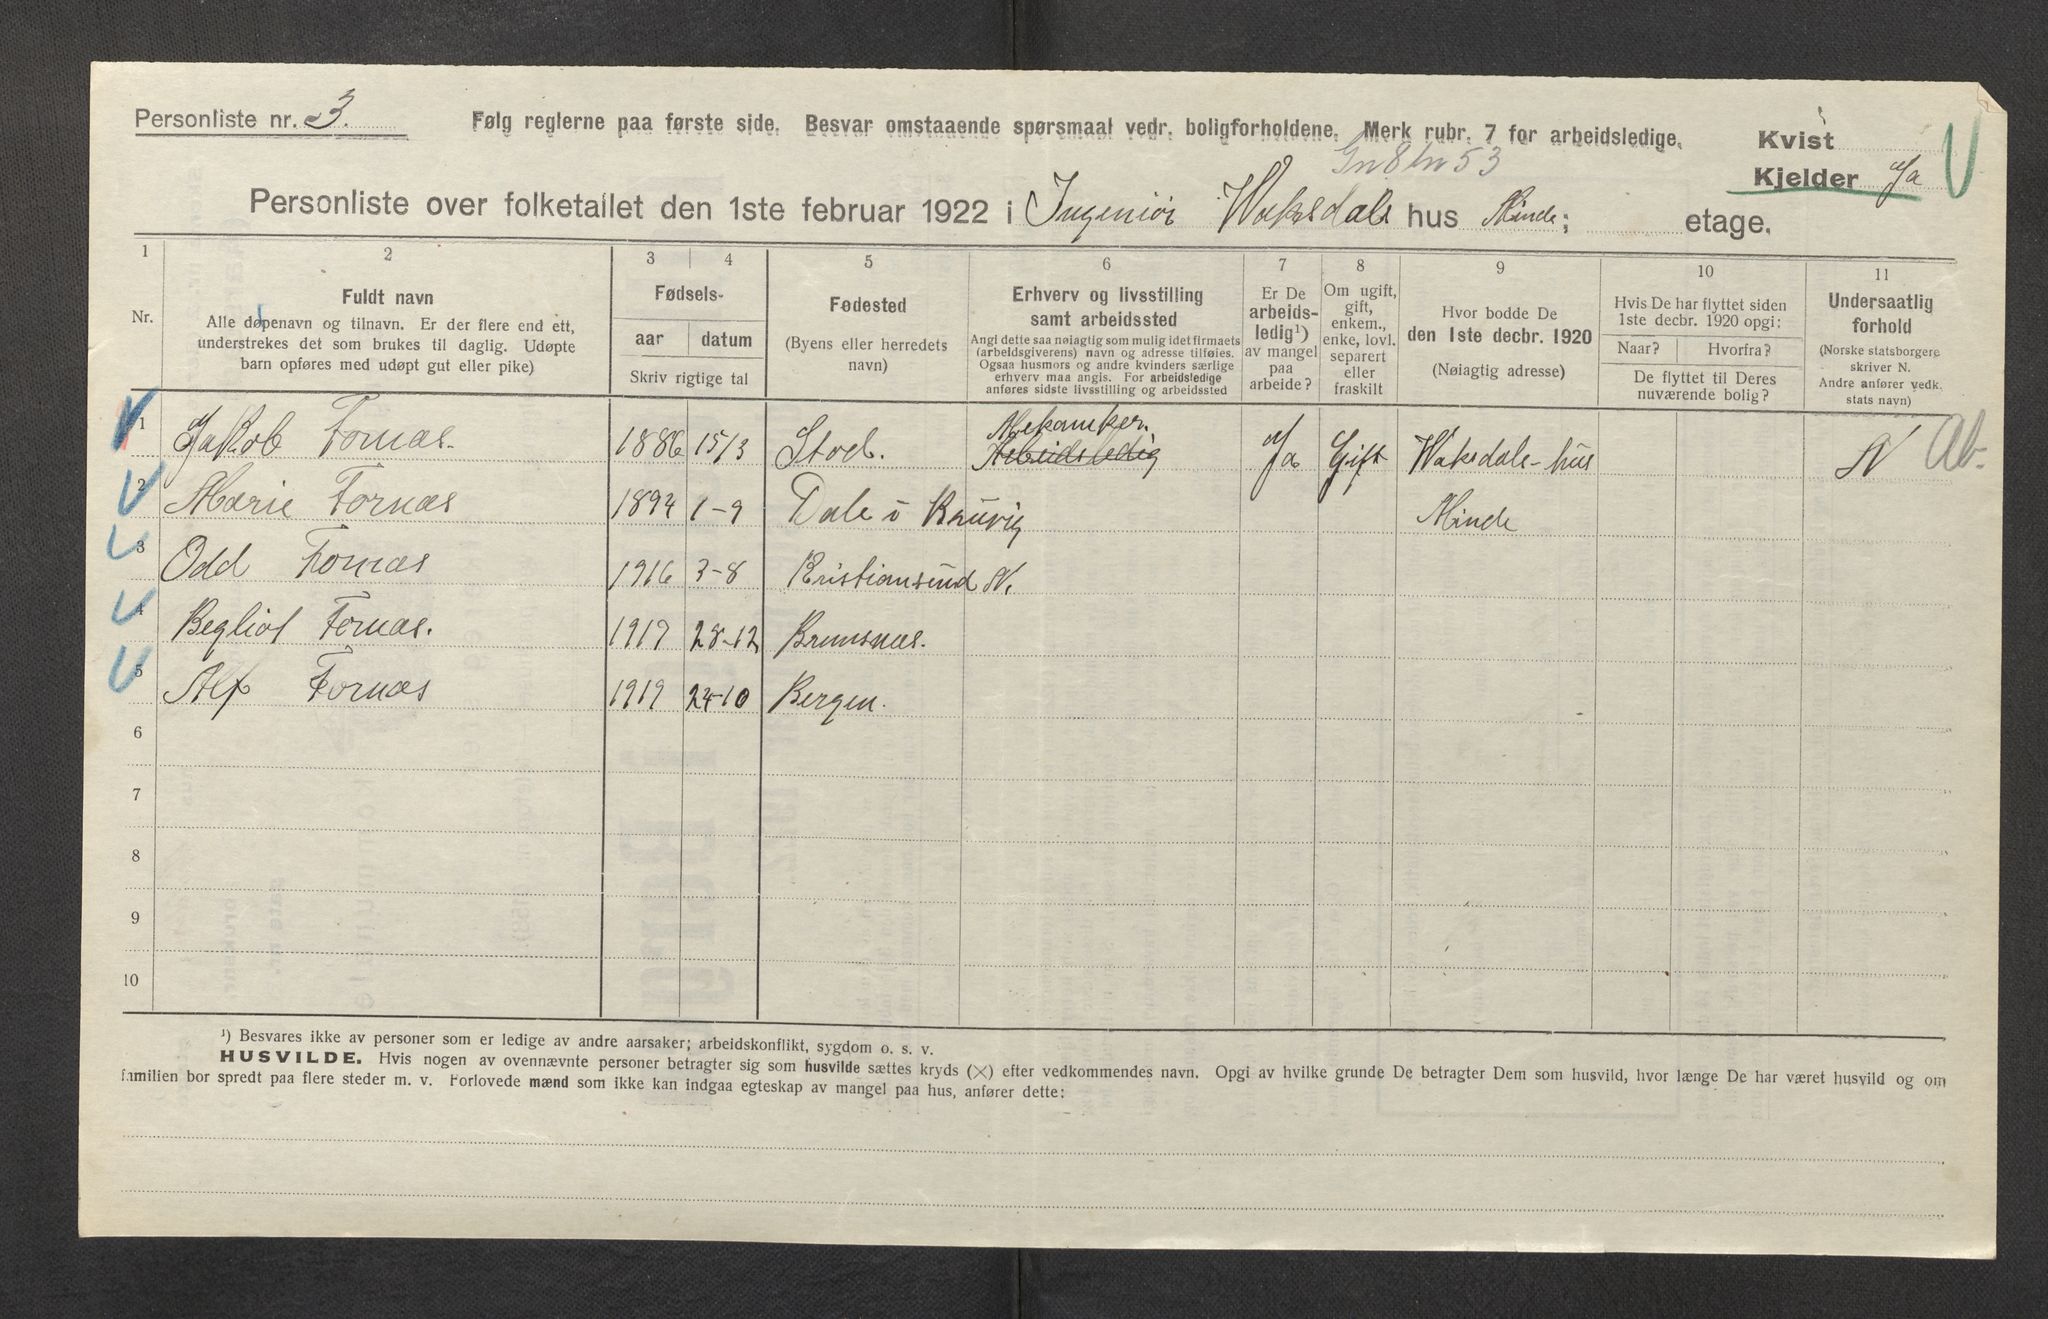 Personliste nr. 3.
Følg reglerne paa første side. Besvar omstaaende spørsmaal vedr. boligforholdene. Merk rubr. 7 for arbeidsledige.
Kvist
Gn 8 bn 53
Kjelder Ja
Personliste over folketallet den 1ste februar 1922 i Ingeniør Waksdals hus Minde; etage.
1 2 3 4 5 6 7 8 9 10 11
Nr.
Fuldt navn
Alle døpenavn og tilnavn. Er der flere end ett,
understrekes det som brukes til daglig. Udøpte
barn opføres med udøpt gut eller pike)
Fødsels-
aar datum
Skriv rigtige tal
Fødested
(Byens eller herredets
navn)
Erhverv og livsstilling
samt arbeidssted
Angi dette saa nøiagtig som mulig idet firmaets
(arbeidsgiverens) navn og adresse tilføies.
Ogsaa husmors og andre kvinders særlige
erhverv maa angis. For arbeidsledige
anføres sidste livsstilling og arbeidssted
Er De
arbeids-
ledig¹)
av mangel
paa
arbeide?
Om ugift,
gift,
enkem.,
enke, lovl.
separert
eller
fraskilt
Hvor bodde De
den 1ste decbr. 1920
(Nøiagtig adresse)
Hvis De har flyttet siden
1ste decbr. 1920 opgi:
Naar? Hvorfra?
De flyttet til Deres
nuværende bolig?
Undersaatlig
forhold
(Norske statsborgere
skriver N.
Andre anfører vedk.
stats navn)
Mekaniker.
1 Jakob Fornæs. 1886 15/3 Stod. Arbeidsledig Ja Gift Waksdals-hus N Ab.
2 Marie Fornæs 1894 1-9 Dale i Minde
3 Odd Fornæs 1916 3-8 Kristiansund N.
4 Begliot Fornæs. 1917 28-12 Bremsnæs.
5 Alf Fornæs 1919 24-10 Bergen.
6
7
8
9
10
¹) Besvares ikke av personer som er ledige av andre aarsaker; arbeidskonflikt, sygdom o. s. v.
HUSVILDE. Hvis nogen av ovennævnte personer betragter sig som husvilde sættes kryds (×) efter vedkommendes navn. Opgi av hvilke grunde De betragter Dem som husvild, hvor længe De har været husvild og om
familien bor spredt paa flere steder m. v. Forlovede mænd som ikke kan indgaa egteskap av mangel paa hus, anfører dette: